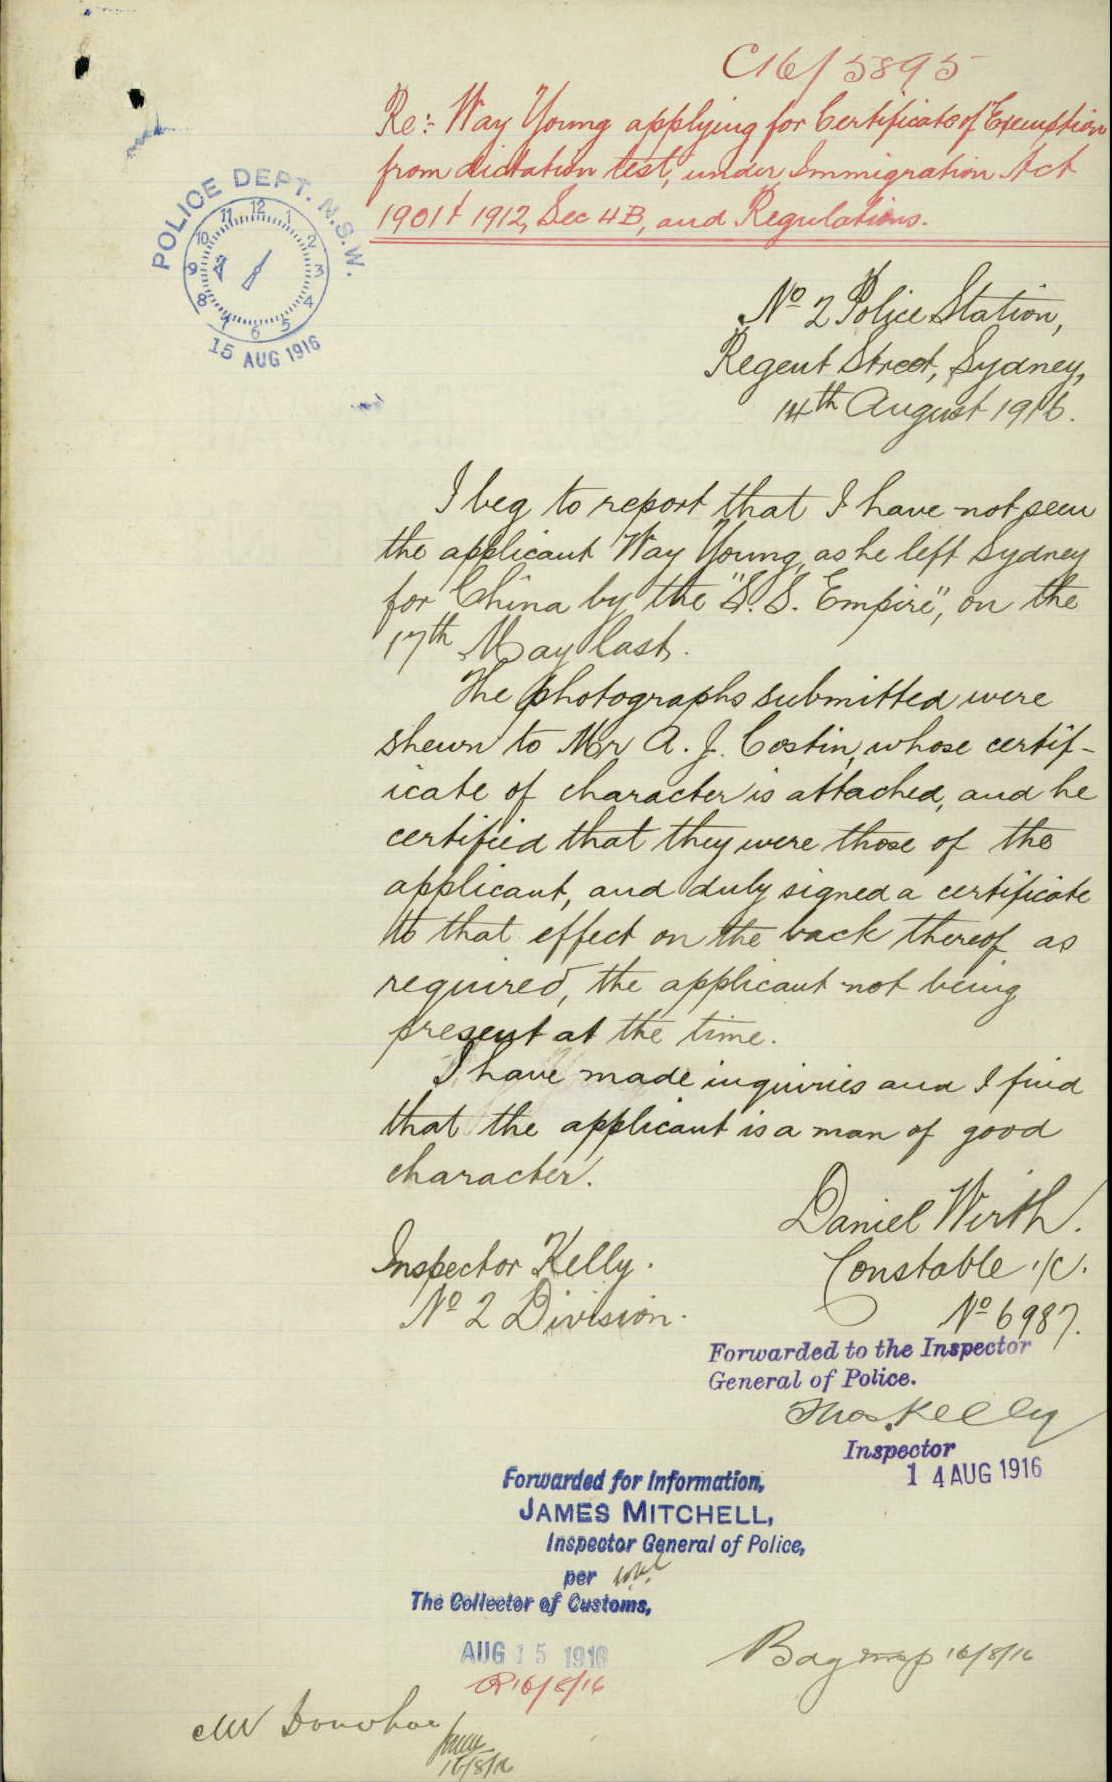 C16/5895
Re:- Way Young applying for Certificate of Exemption
from dictation test, under Immigration Act
1901 & 1912, Sec 4B, and Regulations.
POLICE DEPT. N.S.W.
12
1
2
3
4
5
6
7
8
9
10
11
15 AUG 1916
No 2 Police Station,
Regent Street, Sydney,
14th August 1916.
I beg to report that I have not seen
the applicant Way Young, as he left Sydney
for China by the "S.S. Empire", on the
17th May last.
The photographs submitted were
shewn to Mr A. J. Costin, whose certif-
icate of character is attached, and he
certified that they were those of the
applicant, and duly signed a certificate
to that effect on the back thereof as
required, the applicant not being
present at the time.
I have made inquiries and I find
that the applicant is a man of good
character.
Daniel Wirth.
Constable 1/c.
No 6987.
Inspector Kelly.
No 2 Division.
Forwarded to the Inspector
General of Police.
Thos. Kelly
Inspector
14 AUG 1916
Forwarded for Information,
JAMES MITCHELL,
Inspector General of Police,
per
The Collector of Customs,
AUG 15 1916
16/8/16
Bag 16/8/16
Mr Donohoe
16/8/16